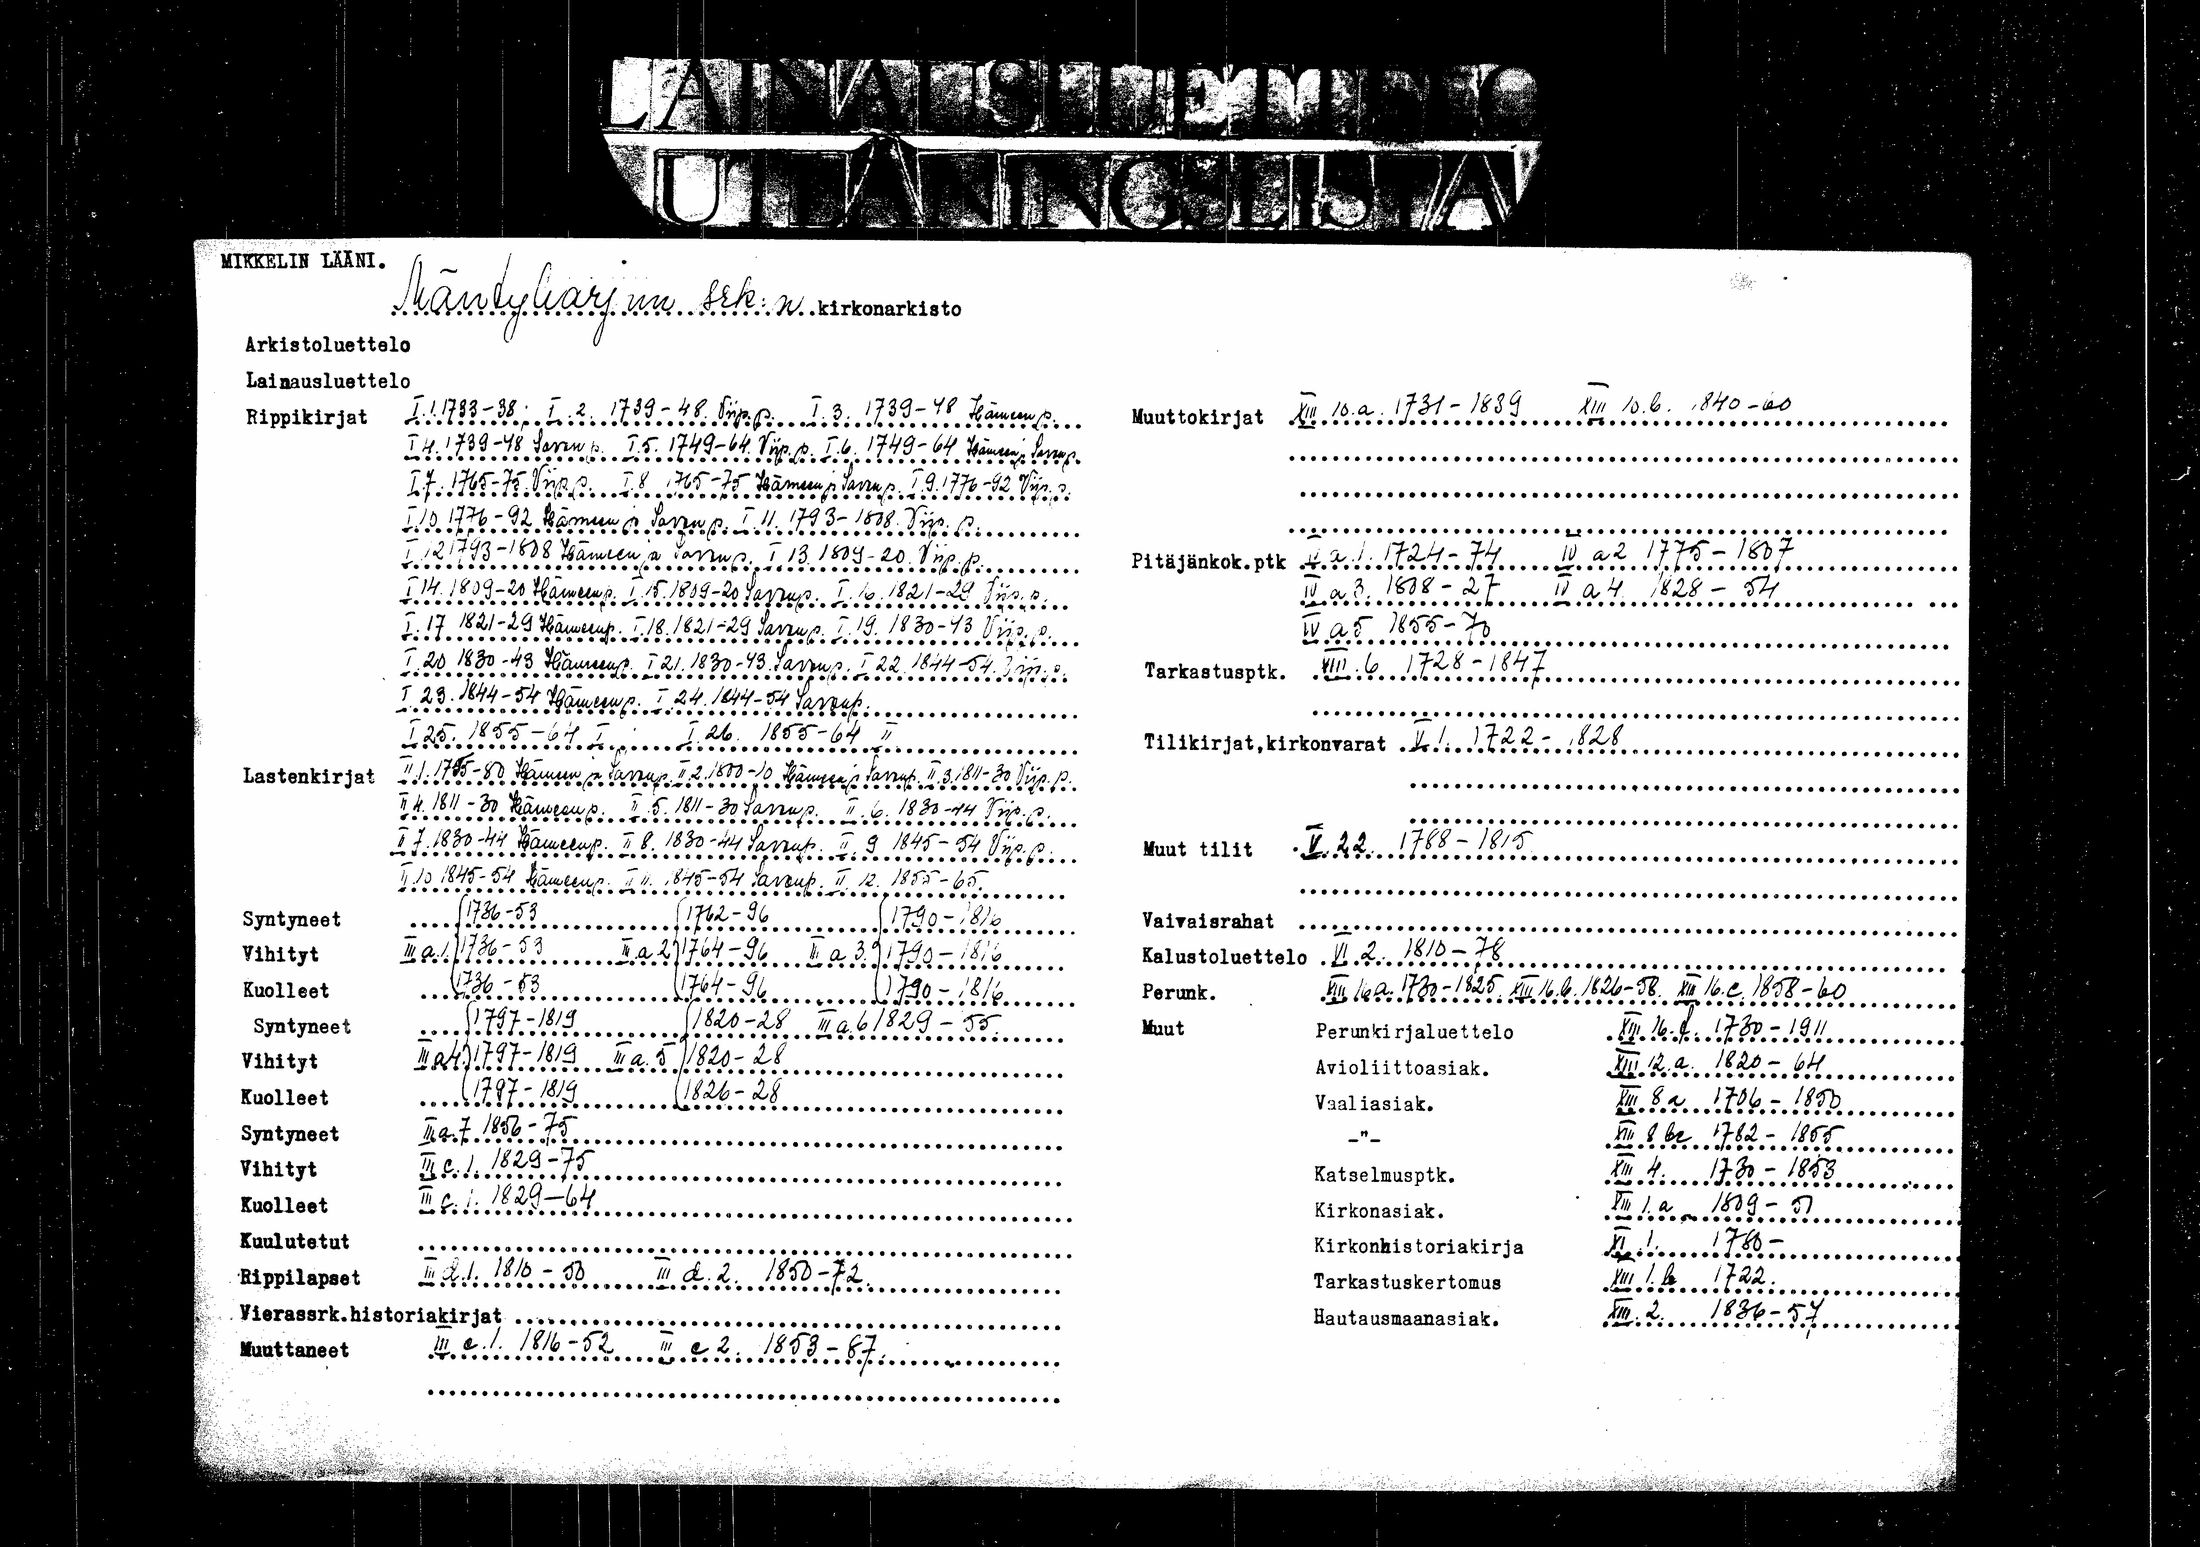 LAINAUSLUETTELO
UTLÅNINGSLISTA
MIKKELIN LÄÄNI.
Mäntyharjun srk:n kirkonarkisto
Arkistoluettelo
Lainausluettelo
Rippikirjat I.1.1733-38; I.2. 1739-48. Viip.p. I.3. 1739-48 Hämeen p.
I 4. 1739-48 Savon p. I.5. 1749-64. Viip.p. I.6. 1749-64 Hämeen ja Savon p.
I.7. 1765-75. Viip.p. I.8 1765-75 Hämeen ja Savon p. I.9.1776-92 Viip.p.
I.10 1776-92 Hämeen ja Savon p. I.11. 1793-1808. Viip. p.
I.12 1793-1808 Hämeen ja Savon p. I 13. 1809-20. Viip.p.
I 14. 1809-20 Hämeen p. I.15. 1809-20 Savon p. I.16. 1821-29 Viip.p.
I.17 1821-29 Hämeen p. I 18. 1821-29 Savon p. I.19. 1830-43 Viip.p.
I.20 1830-43 Hämeen p. I 21. 1830-43. Savon p. I 22. 1844-54. Viip.p.
I 23. 1844-54 Hämeen p. I 24. 1844-54 Savon p.
I 25. 1855-64 I I.26. 1855-64 II
Lastenkirjat II.1. 1795-80 Hämeen ja Savon p. II.2.1800-10 Hämeen ja Savon p. II.3.1811-30 Viip.p.
II 4. 1811-30 Hämeen p. II.5. 1811-30 Savon p. II.6. 1830-44 Viip.p.
II 7. 1830-44 Hämeen p. II 8. 1830-44 Savon p. II. 9 1845-54 Viip.p.
II.10 1845-54 Hämeen p. II 11. 1845-54 Savon p. II. 12. 1855-65.
Syntyneet 1736-53 1762-96 1790-1816
Vihityt III a.1. 1736-53 III a.2 1764-96 III a 3. 1790-1816
Kuolleet 1736-53 1764-96 1790-1816
Syntyneet 1797-1819 1820-28 III a.6 1829-55.
Vihityt III a 4. 1797-1819 III a. 5 1820-28
Kuolleet 1797-1819 1826-28
Syntyneet III a.7 1856-75
Vihityt III c.1. 1829-75
Kuolleet III c.1. 1829-64
Kuulutetut
Rippilapset III d.1. 1810-50 III d.2. 1850-72.
Vierassrk.historiakirjat
Muuttaneet III e.1. 1816-52 III e 2. 1853-87.
Muuttokirjat XIII 10.a. 1731-1839 XIII 10.b. 1840-60
Pitäjänkok.ptk IV a.1. 1724-74 IV a 2 1775-1807
IV a 3. 1808-27 IV a 4. 1828-54
IV a 5 1855-70
Tarkastusptk. VIII.6. 1728-1847
Tilikirjat,kirkonvarat V.1. 1722-1828
Muut tilit V.22. 1788-1815
Vaivaisrahat
Kalustoluettelo VI 2. 1810-78
Perunk. XIII 16.a. 1730-1825. XIII 16.b. 1826-58. XIII 16.c. 1858-60
Muut Perunkirjaluettelo XIII 16.f. 1730-1911
Avioliittoasiak. XIII 12.a. 1820-64
Vaaliasiak. XIII 8a 1706-1850
-"- XIII 8 1782-1855
Katselmusptk. XIII 4. 1730-1853
Kirkonasiak. 1.a 1809-51
Kirkonhistoriakirja XI.1. 1780-
Tarkastuskertomus XIII 1.b 1722.
Hautausmaanasiak. XIII.2. 1836-57